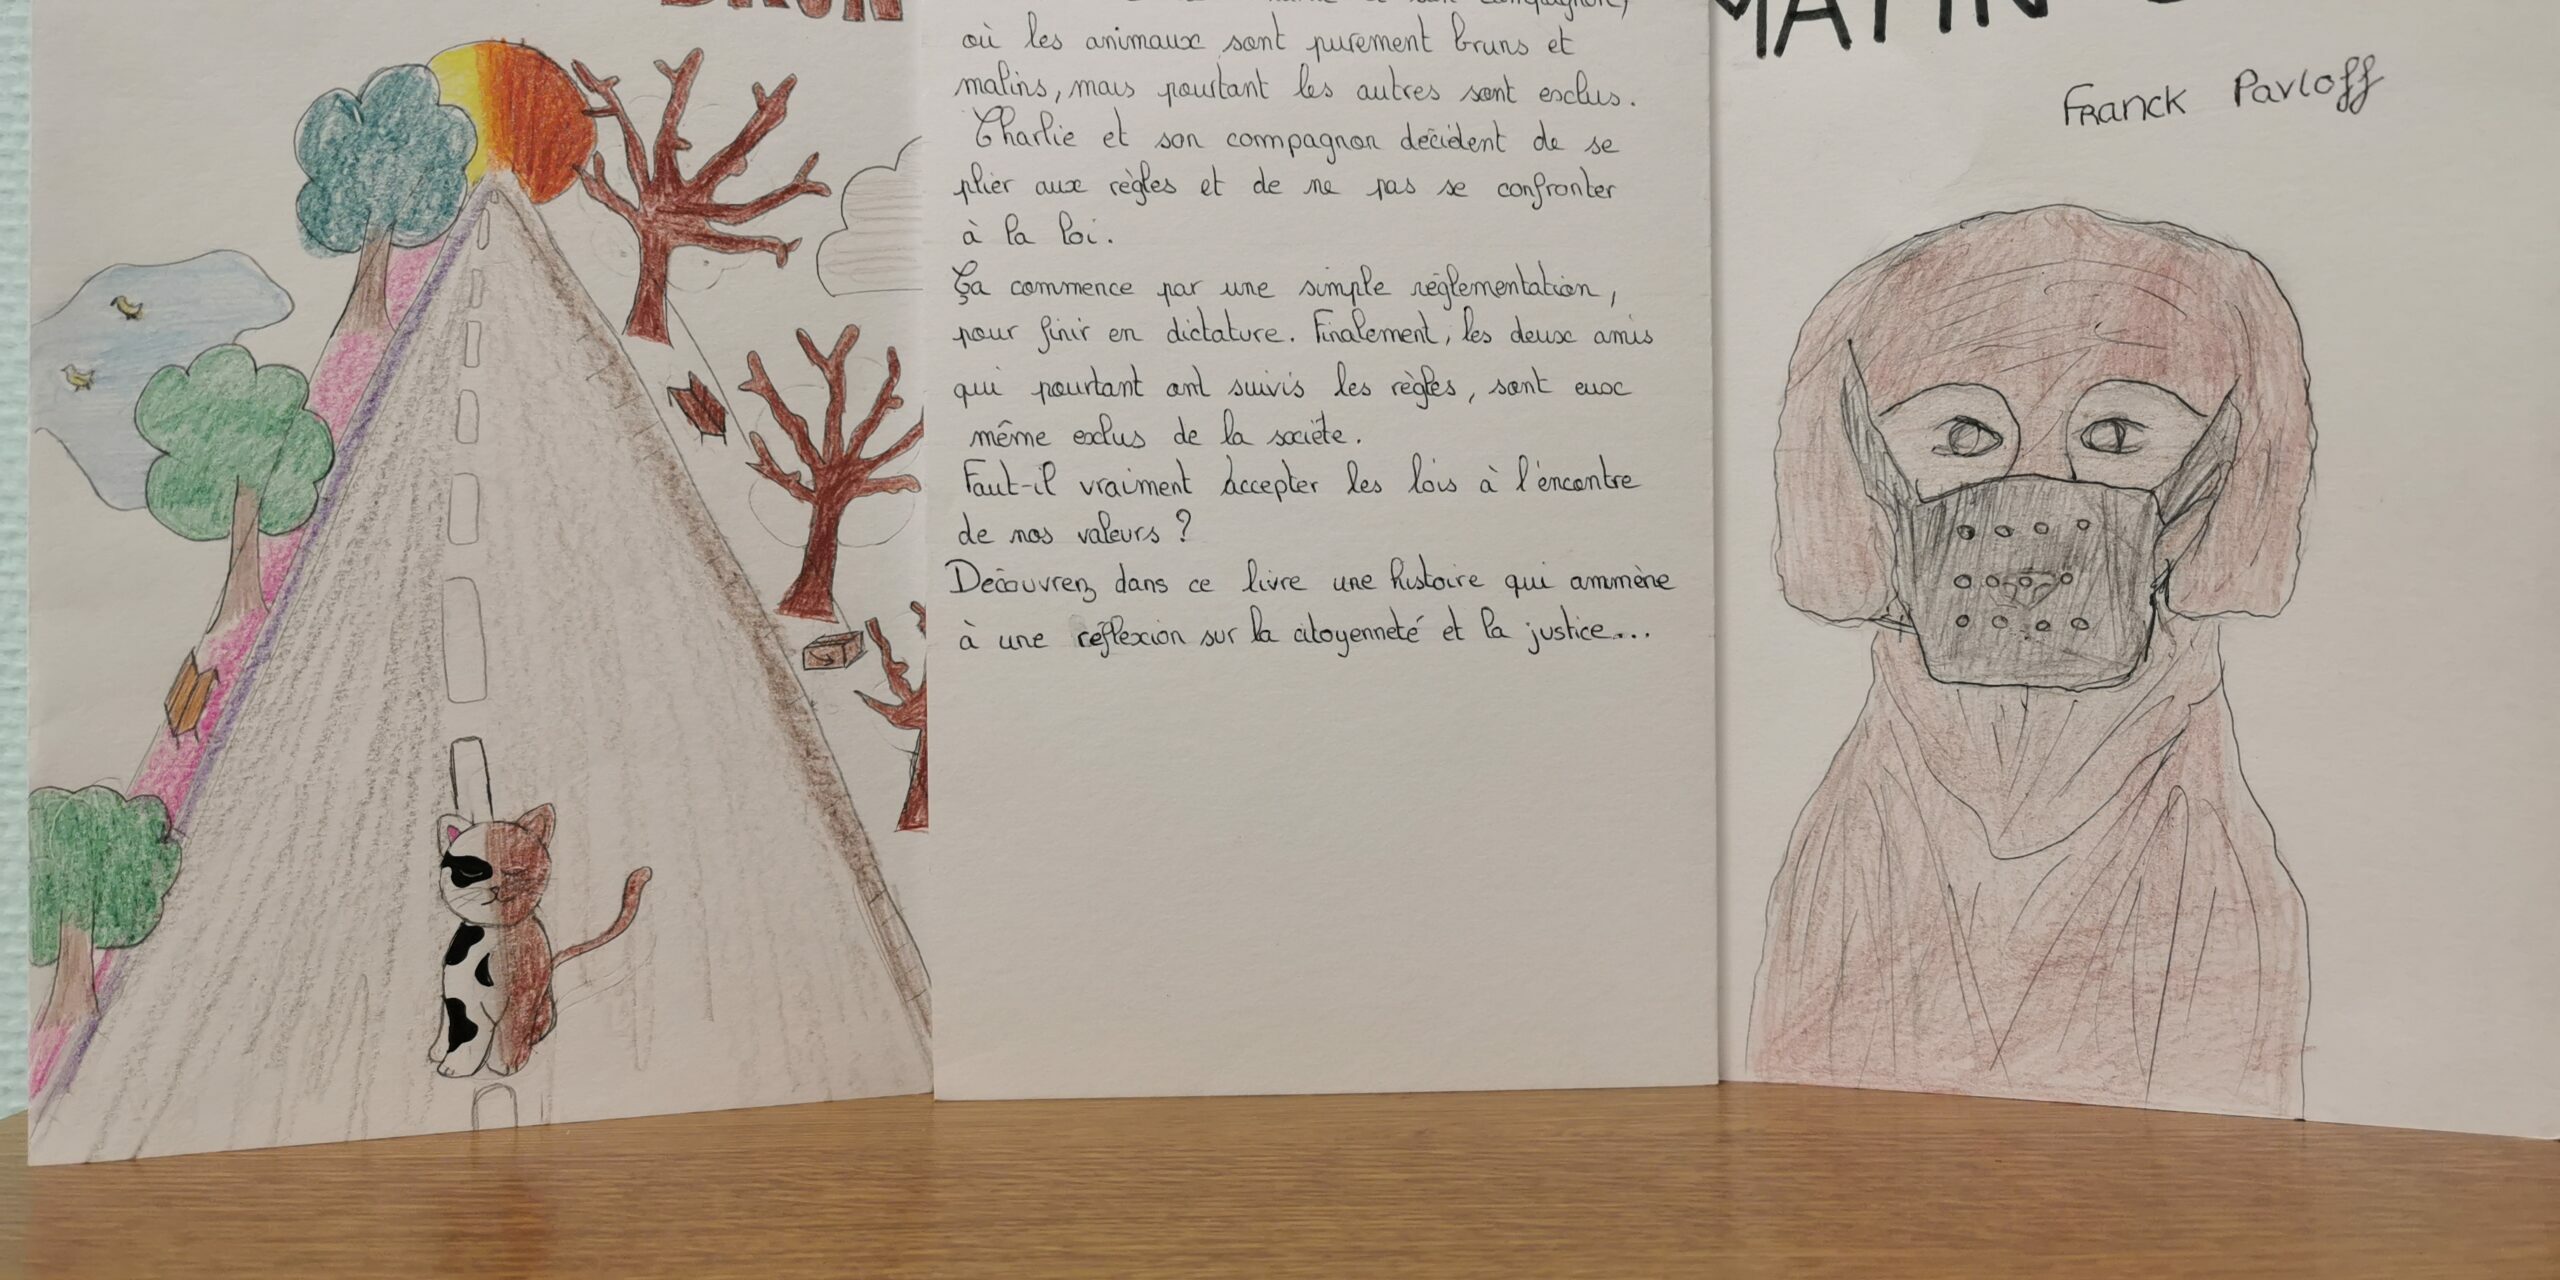 BRUN
et son compagnon,
où les animaux sont purement bruns et
malins, mais pourtant les autres sont exclus.
Charlie et son compagnon décident de se
plier aux règles et de ne pas se confronter
à la loi.
Ça commence par une simple réglementation,
pour finir en dictature. Finalement, les deux amis
qui pourtant ont suivis les règles, sont eux
même exclus de la société.
Faut-il vraiment accepter les lois à l'encontre
de nos valeurs ?
Découvrez dans ce livre une histoire qui ammène
à une réflexion sur la citoyenneté et la justice...
MATIN
Franck Pavloff